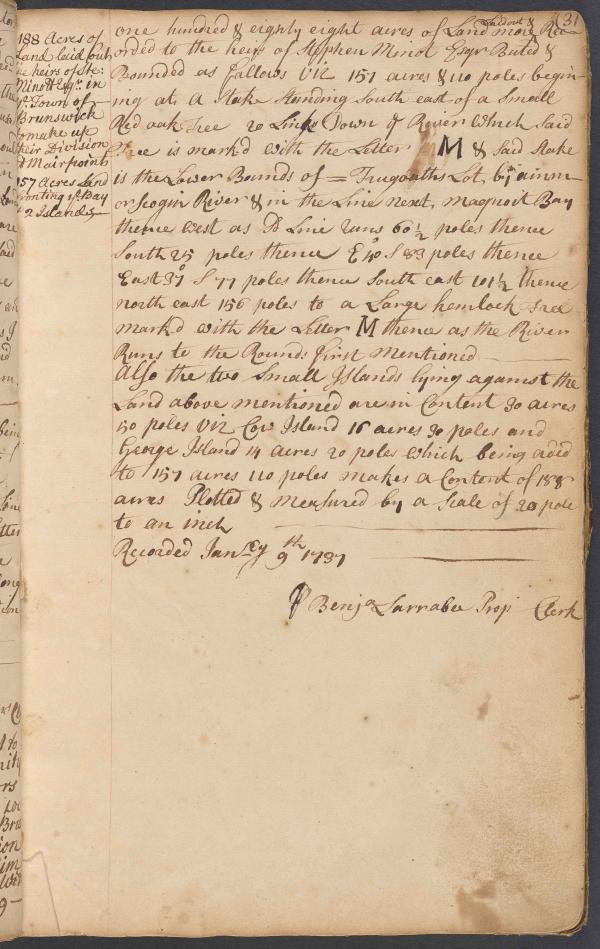 (31
188 Acres of
Land laid out
ye heirs of Ste:
Minott Esqr. in
ye Town of
Brunswick
to make up
their Division
Mairpoint
157 Acres Land
fronting ye Bay
& 2 Islands
Laid out &
one hundred & eighty eight acres of Land more Rec=
orded to the heirs of Stephen Minot Esqr Buted &
Bounded as fallows Viz 157 acres & 110 poles begin=
ing at a Stake Standing South east of a Small
Red oak Tree 20 Links Down ye River Which Said
Tree is markd with the Letter M & Said Stake
is the Lower Bounds of = Lot, by
River & in the Line next, maquoit Bay
thence West as Sd Line runs 60 1/2 poles thence
South 25 poles thence E 40° S 83 poles thence
East 37° S 77 poles thence South east 101 1/2 thence
north east 156 poles to a Large hemlock Tree
markd with the Letter M thence as the River
Runs to the Bounds first mentioned
Also the two Small Islands lying against the
Land above mentioned are in Content 30 acres
50 poles Viz Cow Island 16 acres 30 poles and
George Island 14 acres 20 poles Which being aded
to 157 acres 110 poles makes a Content of 188
acres Plotted & measured by a Scale of 20 pole
to an inch
Recorded Janry 9th 1737
P Benja Larrabee Prop Clerk